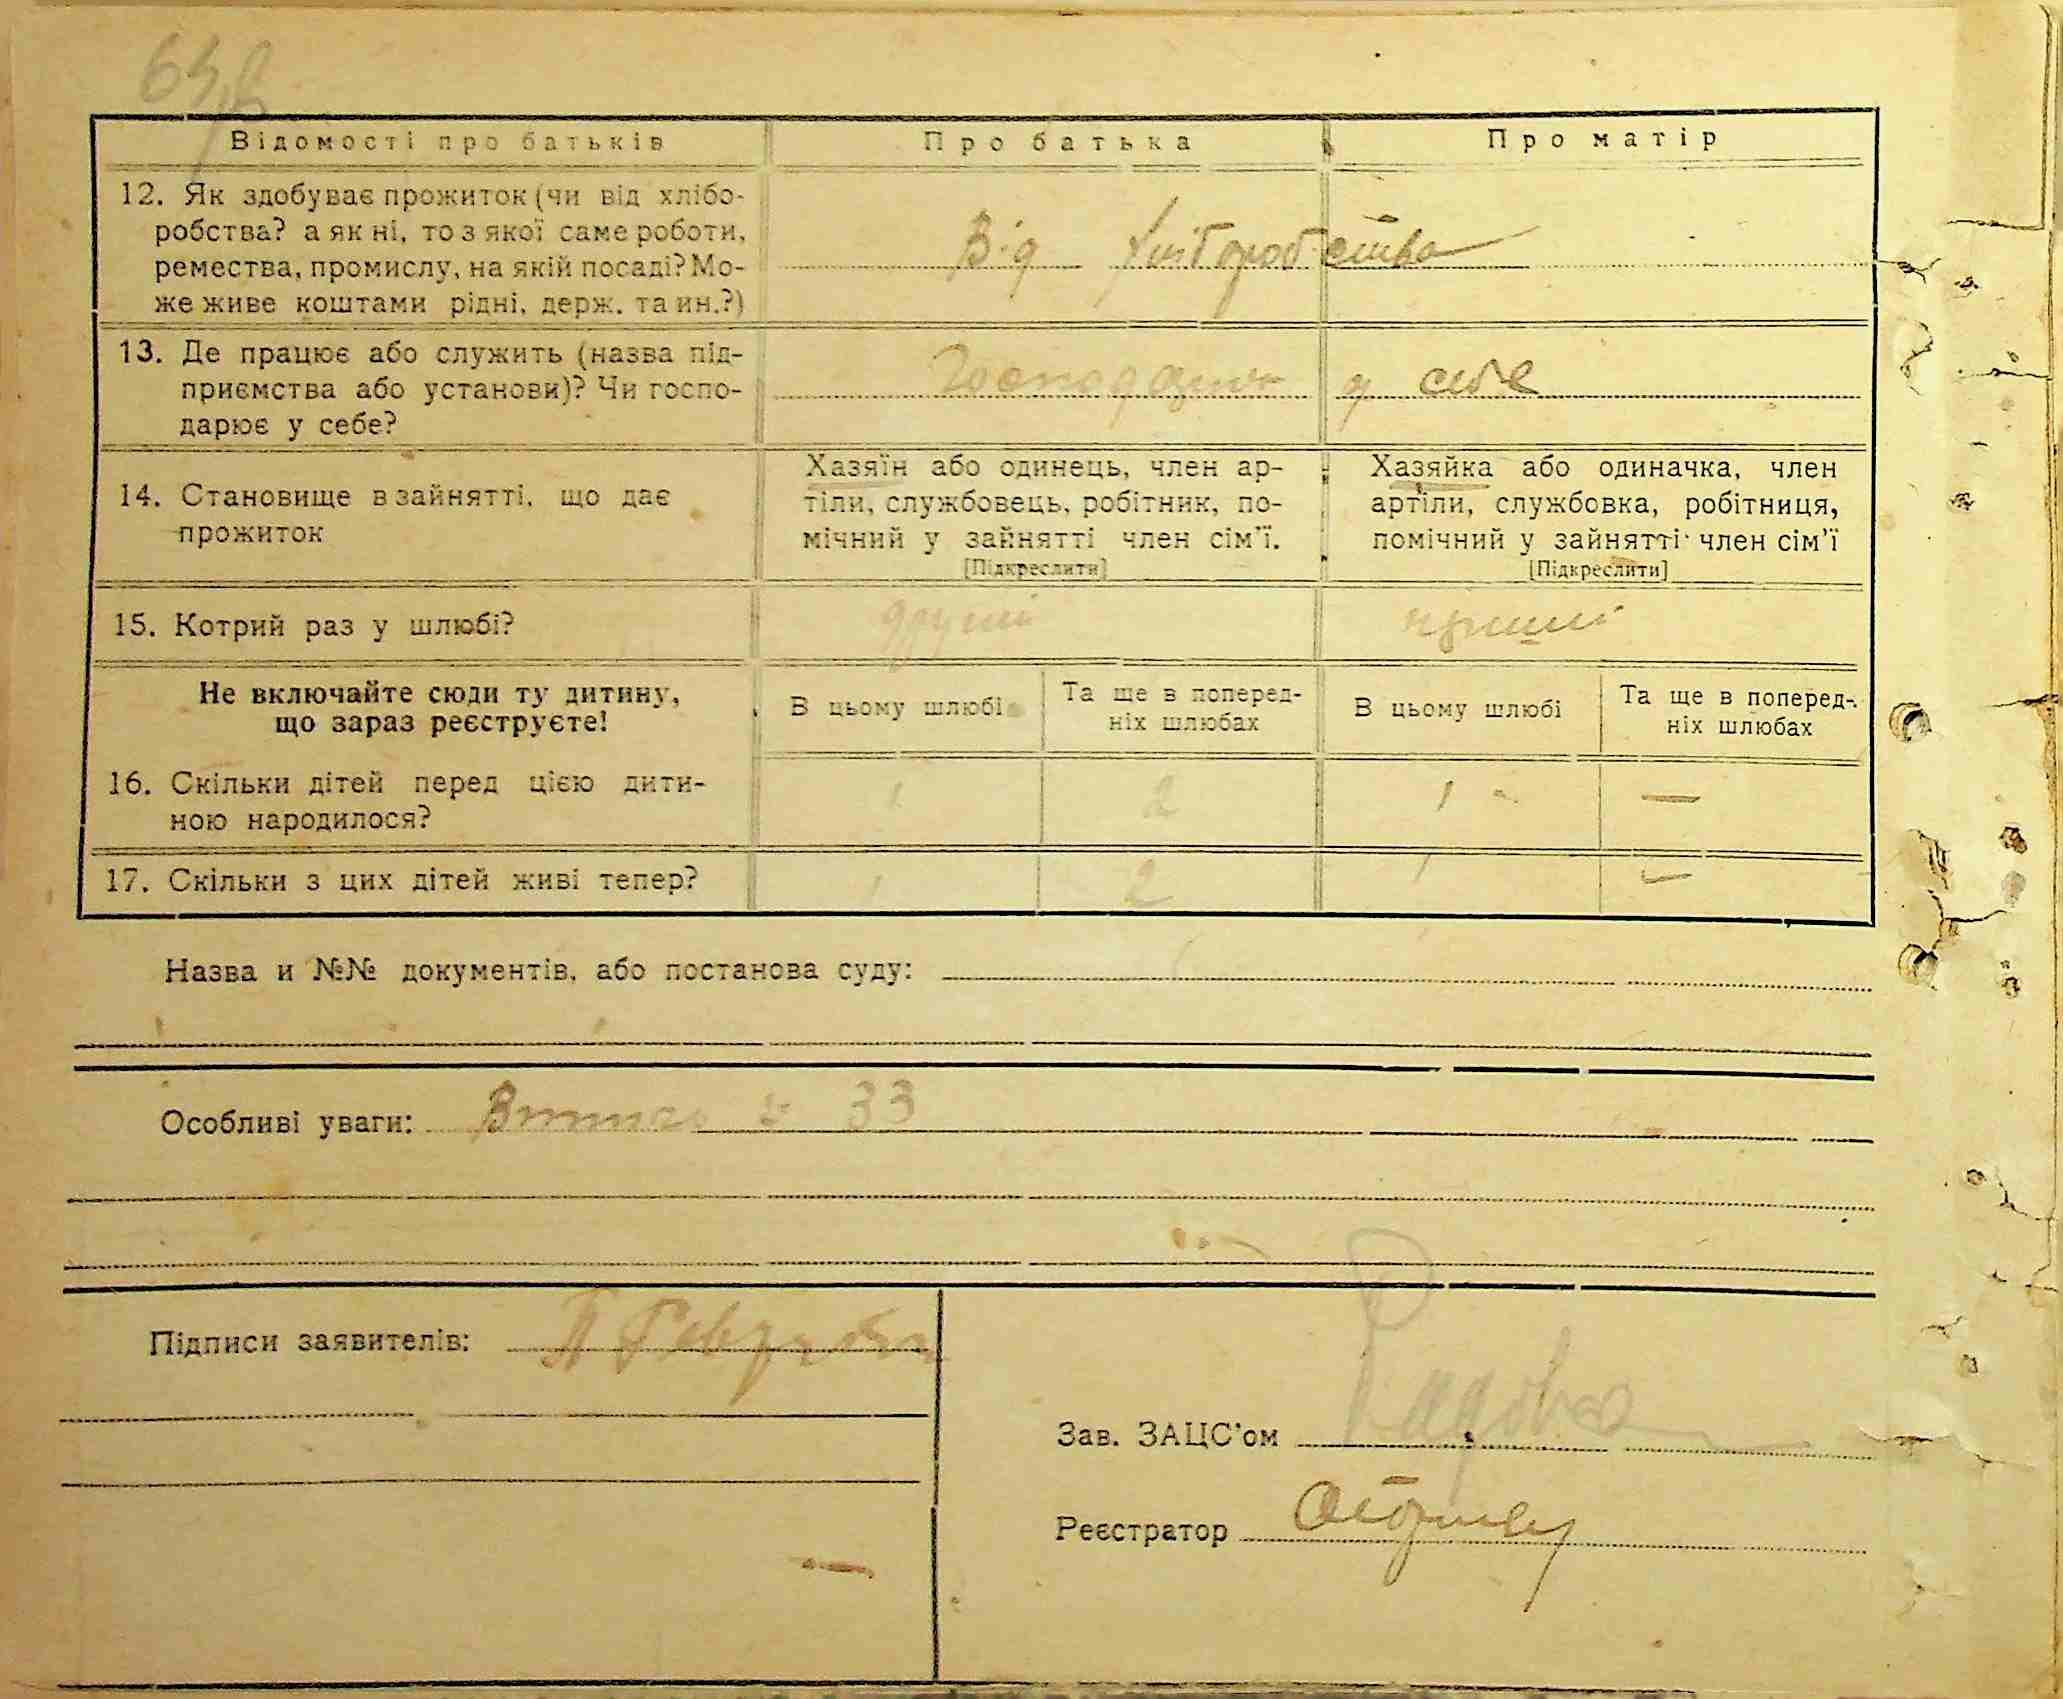 Відомості про батьків Про батька Про матір
12. Як здобуває прожиток (чи від хлібо-
робства? а як ні, то з якої саме роботи,
ремества, промислу, на якій посаді? Мо-
же живе коштами рідні, держ. та ин.?)
Від хліборобства
13. Де працює або служить (назва під-
приємства або установи)? Чи госпо-
дарює у себе?
у себе
14. Становище в зайнятті, що дає
прожиток
Хазяїн або одинець, член ар-
тіли, службовець, робітник, по-
мічний у зайнятті член сім'ї.
[Підкреслити]
Хазяйка або одиначка, член
артіли, службовка, робітниця,
помічний у зайнятті член сім'ї
[Підкреслити]
15. Котрий раз у шлюбі?
другий
перший
Не включайте сюди ту дитину,
що зараз реєструєте!
В цьому шлюбі
Та ще в поперед-
ніх шлюбах
В цьому шлюбі
Та ще в поперед-
ніх шлюбах
16. Скільки дітей перед цією дити-
ною народилося?
1 2 1 —
17. Скільки з цих дітей живі тепер?
1 2 1 —
Назва и №№ документів, або постанова суду:
Особливі уваги: 33
Підписи заявителів:
Зав. ЗАЦС'ом
Реєстратор